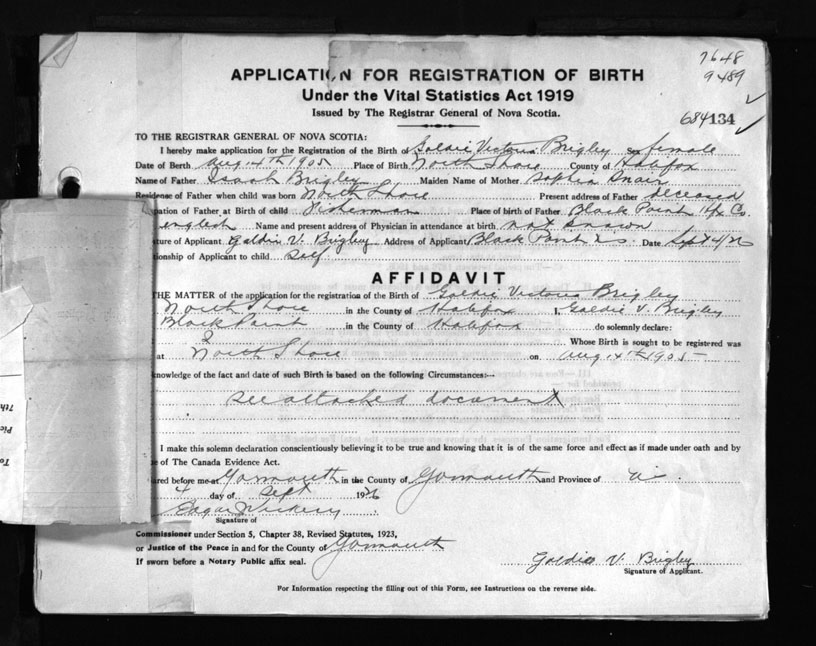 7648
9489
APPLICATION FOR REGISTRATION OF BIRTH
Under the Vital Statistics Act 1919
Issued by The Registrar General of Nova Scotia.
684134
TO THE REGISTRAR GENERAL OF NOVA SCOTIA:
I hereby make application for the Registration of the Birth of Goldie Victoria Brigley Sex female
Date of Birth Aug. 4th 1905 Place of Birth North Shore County of Halifax
Name of Father Isaah Brigley Maiden Name of Mother Sophia
Residence of Father when child was born North Shore Present address of Father deceased
pation of Father at Birth of child Fisherman Place of birth of Father Black Point Hfx Co.
english Name and present address of Physician in attendance at birth not known
ture of Applicant Goldie V. Brigley Address of Applicant Black Point NS Date Sept 4/26
tionship of Applicant to child self
AFFIDAVIT
THE MATTER of the application for the registration of the Birth of Goldie Victoria Brigley
North Shore in the County of Halifax I, Goldie V. Brigley
Black Point in the County of Halifax do solemnly declare:
I Whose Birth is sought to be registered was
at North Shore on Aug 4th 1905
knowledge of the fact and date of such Birth is based on the following Circumstances:—
see attached document
I make this solemn declaration conscientiously believing it to be true and knowing that it is of the same force and effect as if made under oath and by
e of The Canada Evidence Act.
ared before me at Yarmouth in the County of Yarmouth and Province of
4 day of Sept 1926
Edgar Vickery
Signature of
Commissioner under Section 5, Chapter 38, Revised Statutes, 1923,
or Justice of the Peace in and for the County of Yarmouth
If sworn before a Notary Public affix seal.
Goldie V. Brigley
Signature of Applicant.
For Information respecting the filling out of this Form, see Instructions on the reverse side.